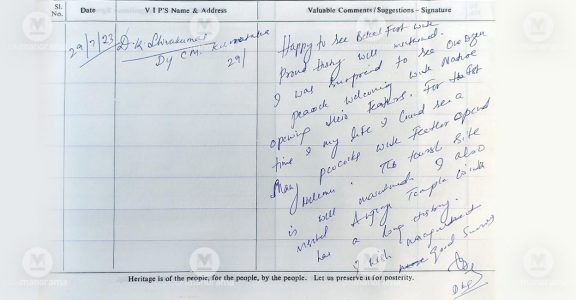 Sl. No. Date V I P'S Name & Address Valuable Comments / Suggestions - Signature
29/7/23 D.K. Shivakumar
Dy CM. Karnataka
29/
Happy to see Bekal Fort with
Proud thing well maintained.
I was surprised to see
peacock welcoming with Native
opening their Feathers. For the first
time in my life I could see a
Many peacocks with Feather opened
welcome. The tourist site
is well maintained. I also
visited Temple which
has a long history.
I wish management
more Good Success
Heritage is of the people, for the people, by the people. Let us preserve it for posterity.
manorama